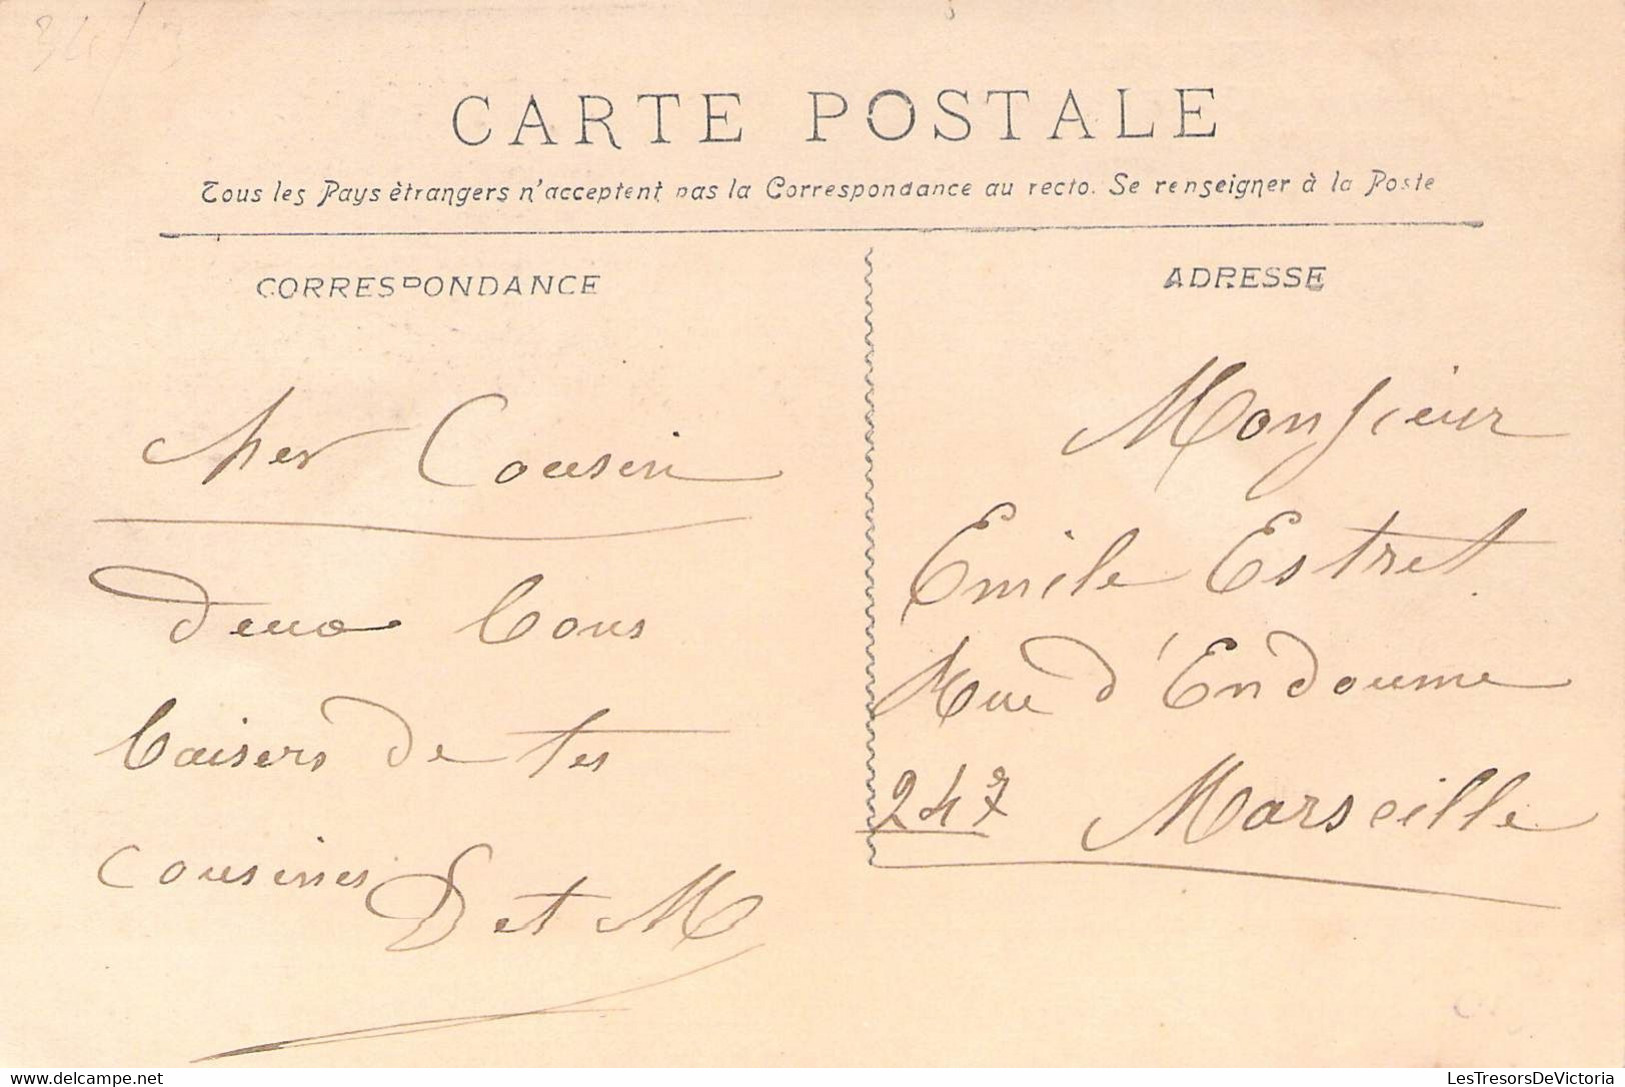 CARTE POSTALE
Tous les Pays ètrangers n'acceptent pas la Correspondance au recto. Se renseigner à la Poste
CORRESPONDANCE
cher Cousin
deux bons
baisers de tes
cousines D et M
ADRESSE
Monsieur
Emile Estret
Rue d'Endoume
247 Marseille
www.delcampe.net
LesTresorsDeVictoria